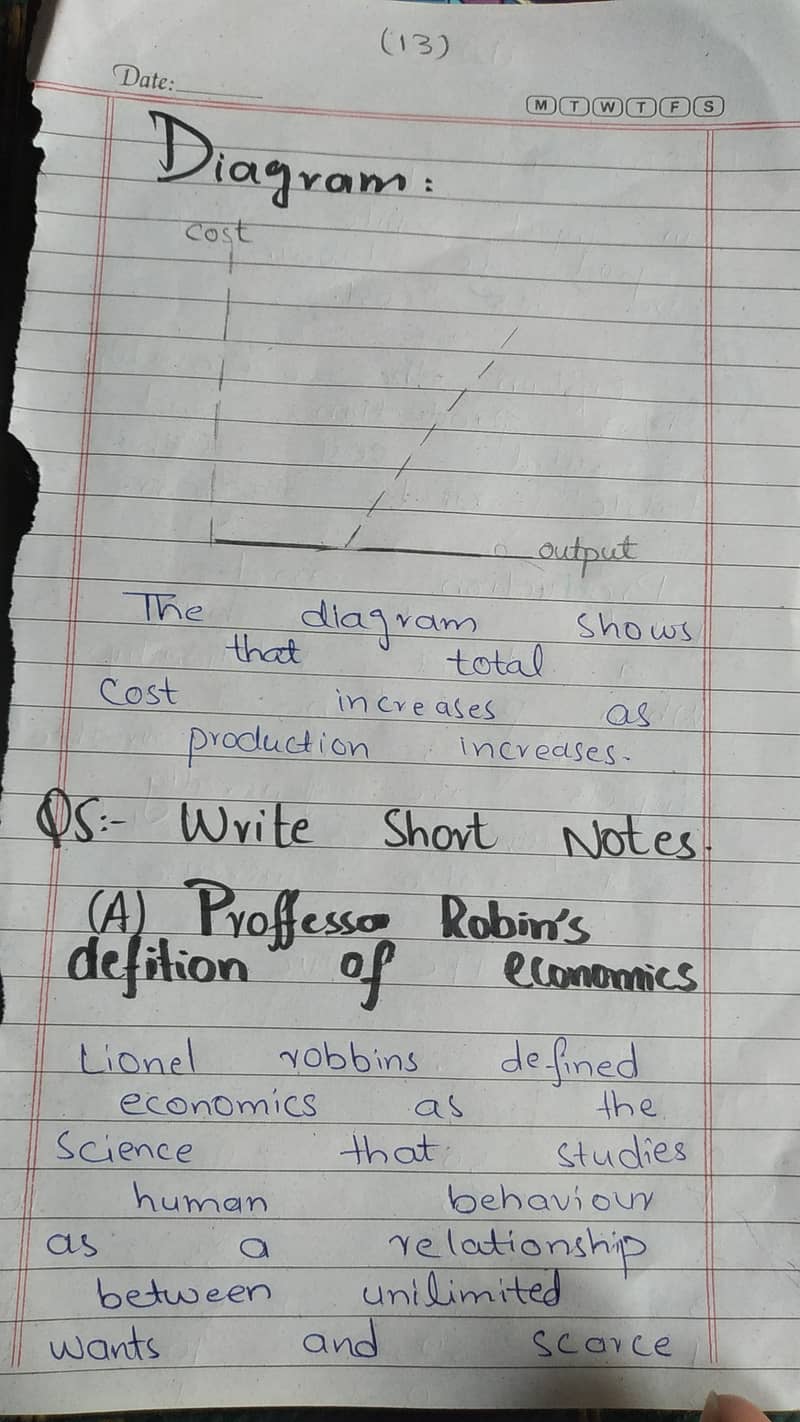 (13)
Date:
M T W T F S
Diagram:
cost
output
The diagram shows
that total
cost increases as
production increases.
Q5:- Write Short Notes.
(A) Proffesso Robin's
defition of economics
Lionel robbins defined
economics as the
Science that studies
human behaviour
as a relationship
between unilimited
wants and scarce